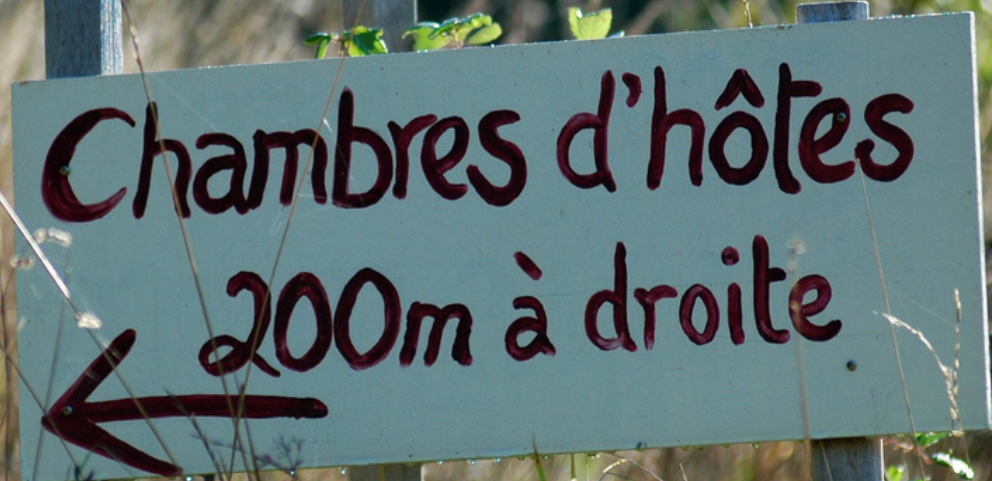 Chambres d'hôtes
200m à droite